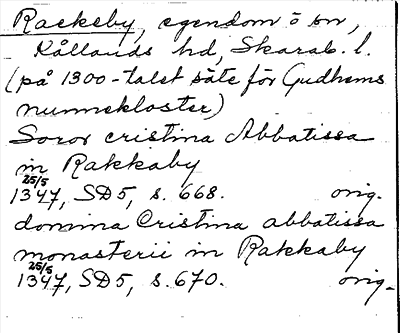 Rackeby, egendom o sn,
Kållands hd, Skarab. l.
(på 1300-talet säte för Gudhems
nunnekloster)
Soror cristina Abbatissa
in Rakkaby
25/5
1347, SD5, s. 668. orig.
domina Cristina abbatissa
monasterii in Rakkaby
25/5
1347, SD5, s. 670. orig.